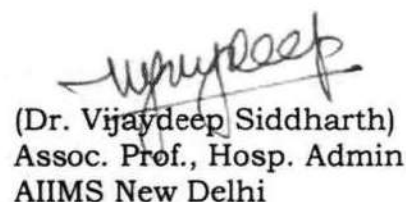 Vijaydeep
(Dr. Vijaydeep Siddharth)
Assoc. Prof., Hosp. Admin
AIIMS New Delhi